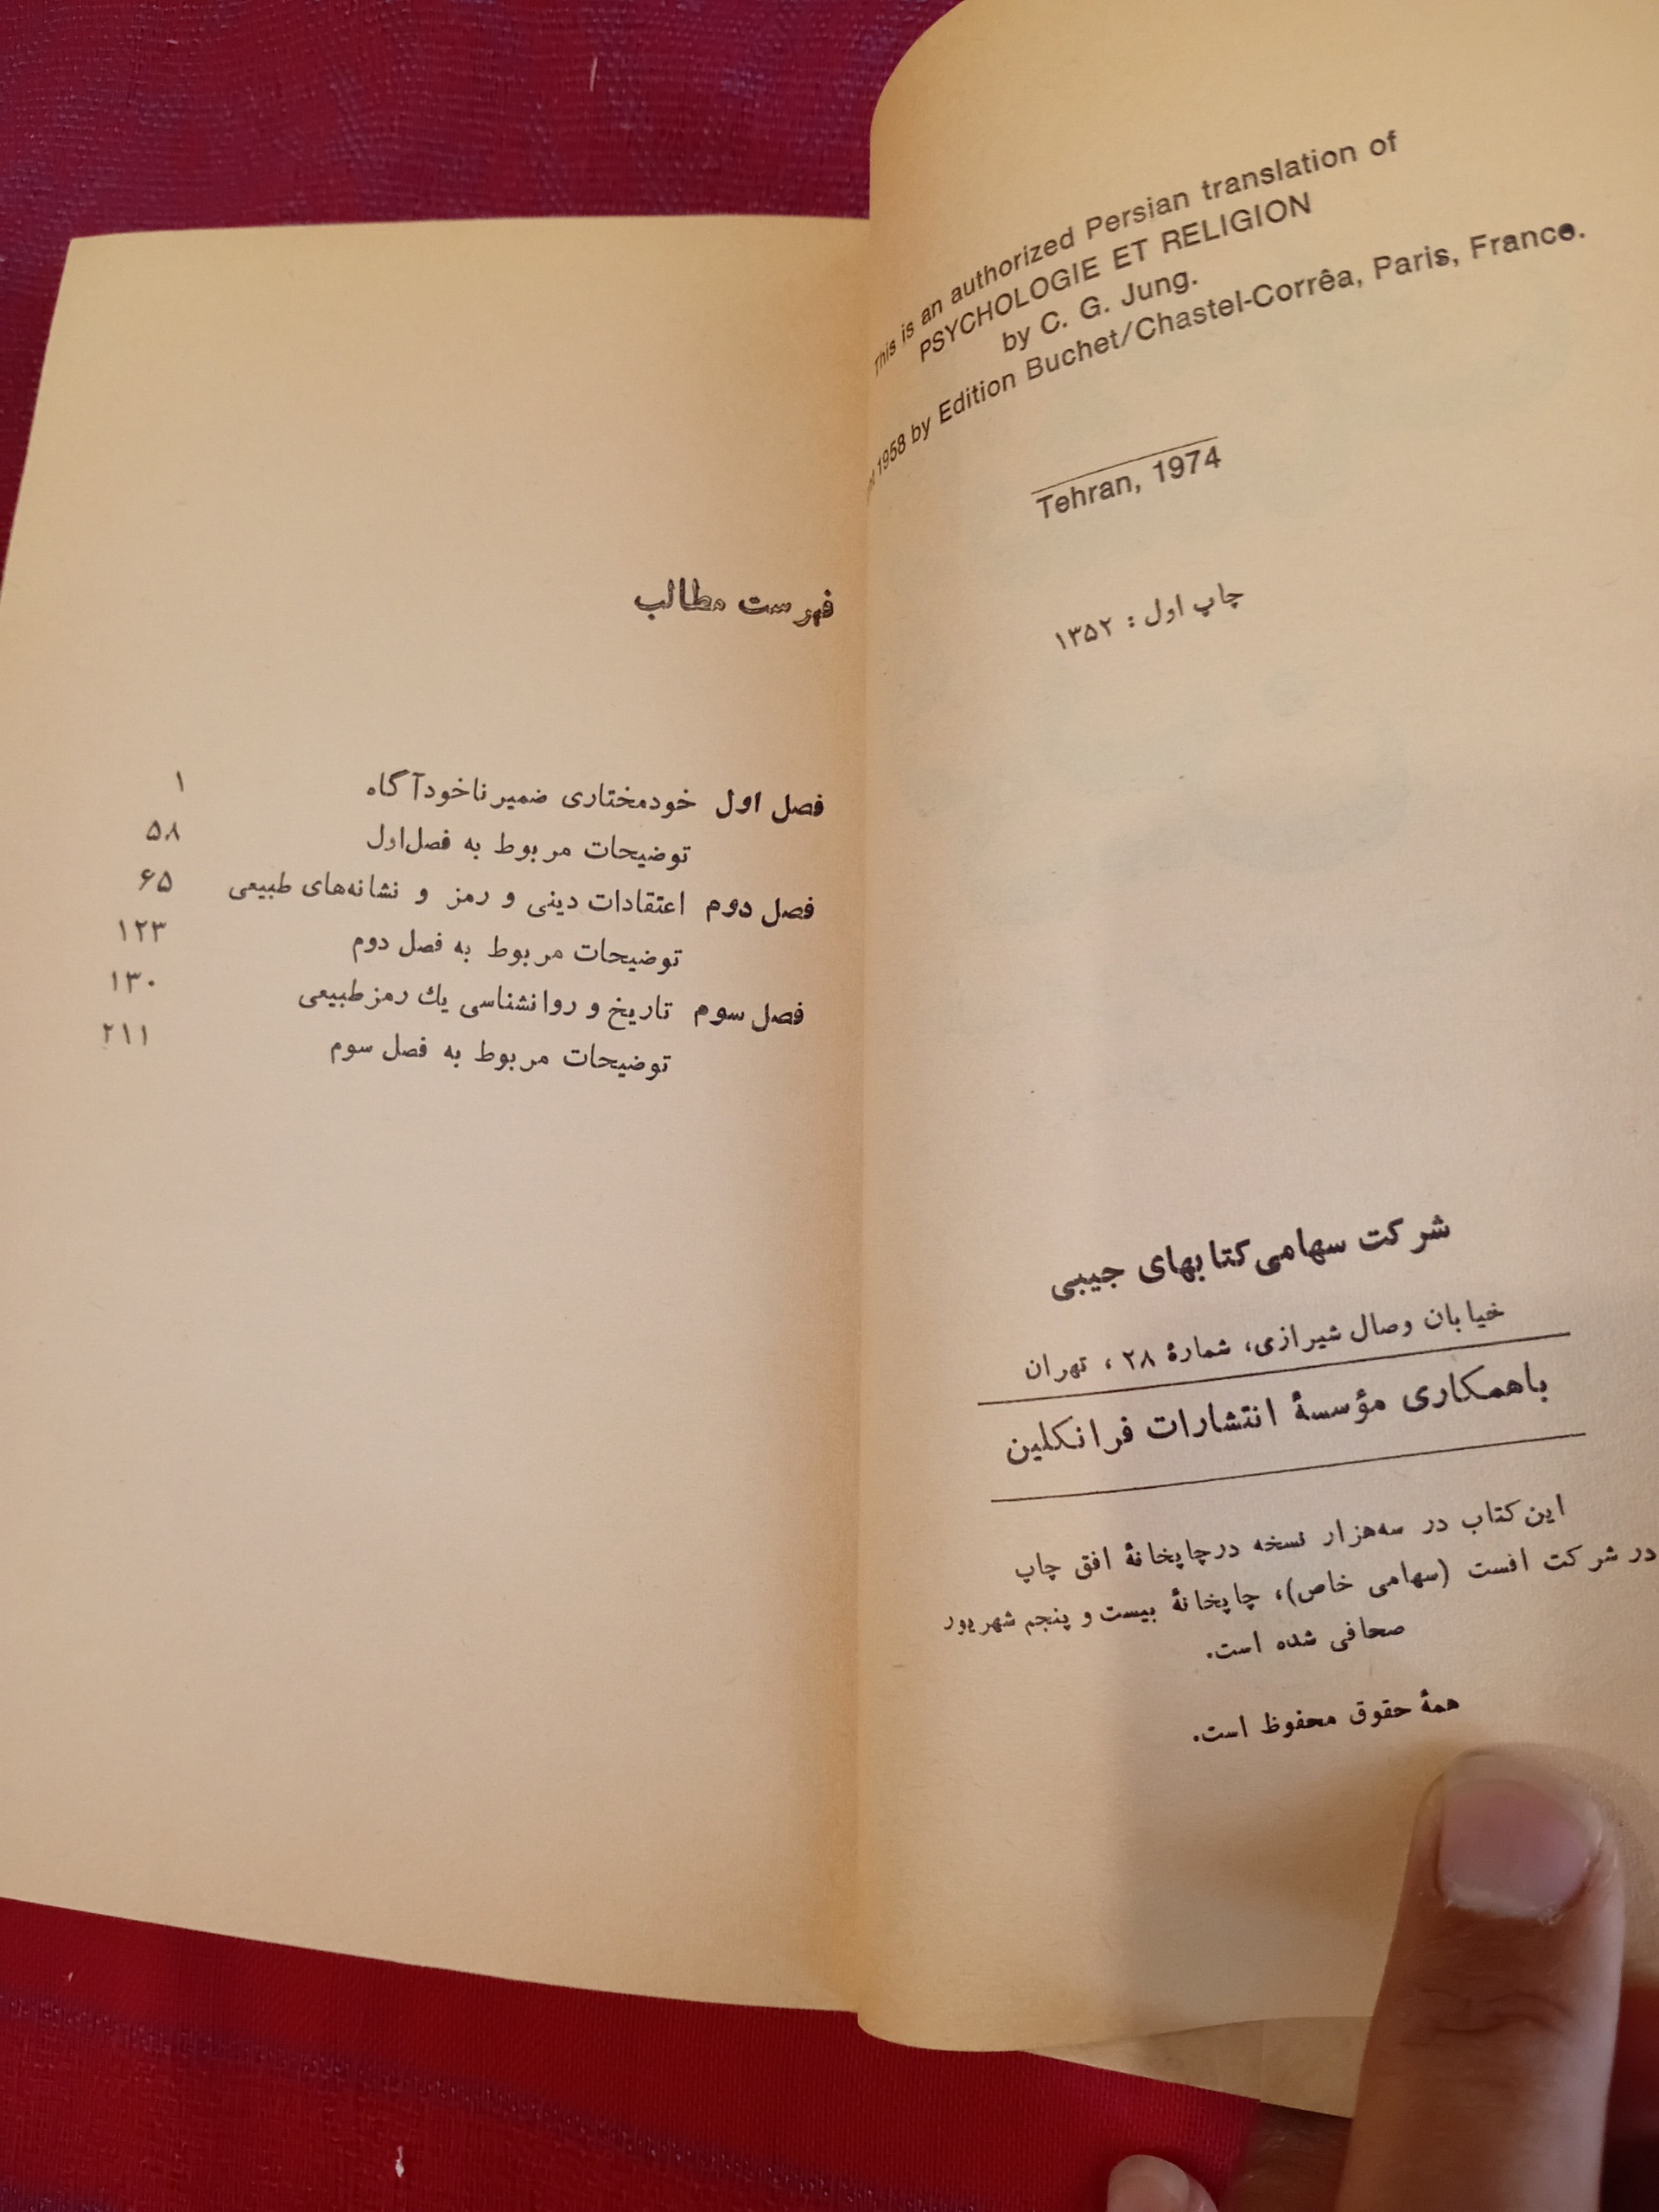 This is an authorized Persian translation of
PSYCHOLOGIE ET RELIGION
by C. G. Jung.
1958 by Edition Buchet/Chastel-Corrêa, Paris, France.
Tehran, 1974
چاپ اول : ۱۳۵۲
شرکت سهامی کتابهای جیبی
خیابان وصال شیرازی، شمارهٔ ۲۸ ، تهران
باهمکاری مؤسسهٔ انتشارات فرانکلین
این کتاب در سه‌هزار نسخه درچاپخانهٔ افق چاپ
در شرکت افست (سهامی خاص)، چاپخانهٔ بیست و پنجم شهریور
صحافی شده است.
همهٔ حقوق محفوظ است.
فهرست مطالب
فصل اول خودمختاری ضمیر ناخودآگاه ۱
توضیحات مربوط به فصل‌اول ۵۸
فصل دوم اعتقادات دینی و رمز و نشانه‌های طبیعی ۶۵
توضیحات مربوط به فصل دوم ۱۲۳
فصل سوم تاریخ و روانشناسی یك رمز طبیعی ۱۳۰
توضیحات مربوط به فصل سوم ۲۱۱